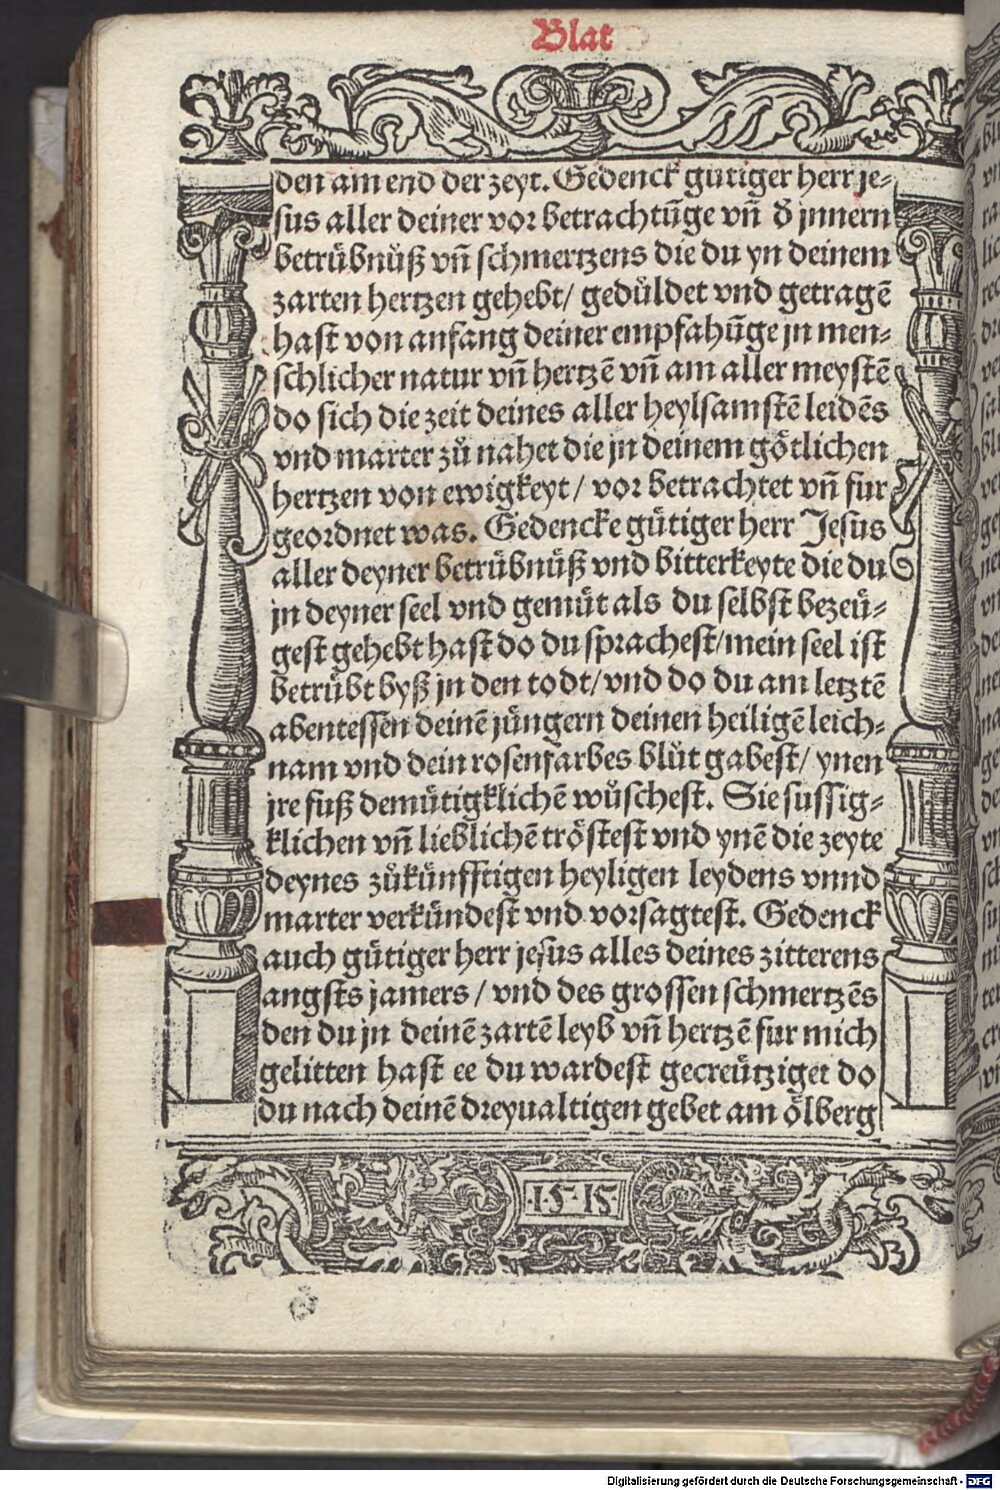 Blat
den am end der zeyt. Gedenck gütiger herr je⸗
sus aller deiner vor betrachtūge vn̄ d̕ jnnern
betrübnůß vn̄ schmertzens die du yn deinem
zarten hertzen gehebt/ gedüldet vnd getragē
hast von anfang deiner empfahūge jn men⸗
schlicher natur vn̄ hertzē vn̄ am aller meystē
do sich die zeit deines aller heylsamstē leidēs
vnd marter zů nahet die jn deinem götlichen
hertzen von ewigkeyt/ vor betrachtet vn̄ fur
geordnet was. Gedencke gütiger herr Jesus
aller deyner betrübnüß vnd bitterkeyte die du
jn deyner seel vnd gemüt als du selbst bezeü⸗
gest gehebt hast do du sprachest/mein seel ist
betrübt byß jn den todt/vnd do du am letztē
abentessen deinē jüngern deinen heiligē leich⸗
nam vnd dein rosenfarbes blüt gabest/ ynen
jre fuß demütigklichē wůschest. Sie sussig⸗
klichen vn̄ lieblichē tröstest vnd ynē die zeyte
deynes zůkünfftigen heyligen leydens vnnd
marter verkündest vnd vorsagtest. Gedenck
auch gütiger herr jesus alles deines zitterens
angsts jamers / vnd des grossen schmertzēs
den du jn deinē zartē leyb vn̄ hertzē fur mich
gelitten hast ee du wardest gecreütziget do
du nach deinē dreyualtigen gebet am ölberg
·1·5·15·
Digitalisierung gefördert durch die Deutsche Forschungsgemeinschaft - DFG